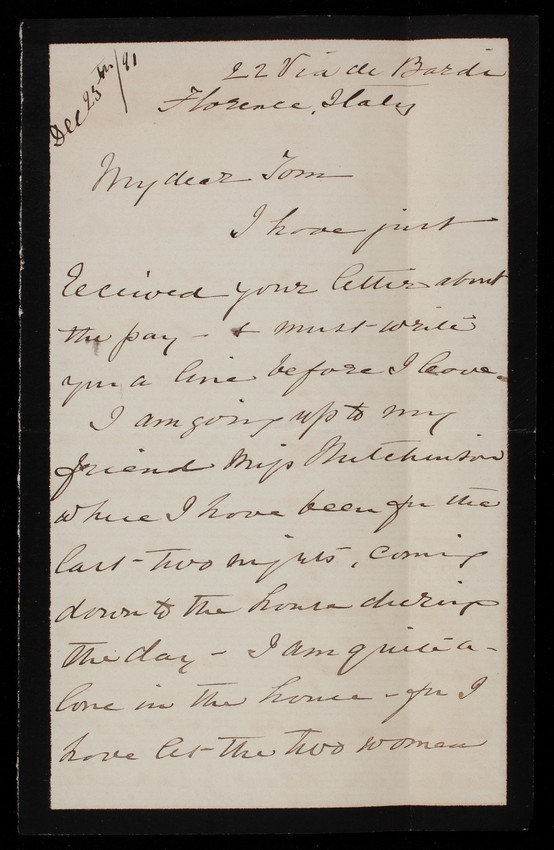 Dec 25th/81
22 Via de Bardi
Florence, Italy
My dear Tom
I have just
received your letter about
the pay - & must write
you a line before I leave.
I am going up to my
friend Miss Hutchinson
where I have been for the
last two nights, coming
down to the house during
the day - I am quite a-
lone in the house - for I
have let the two women